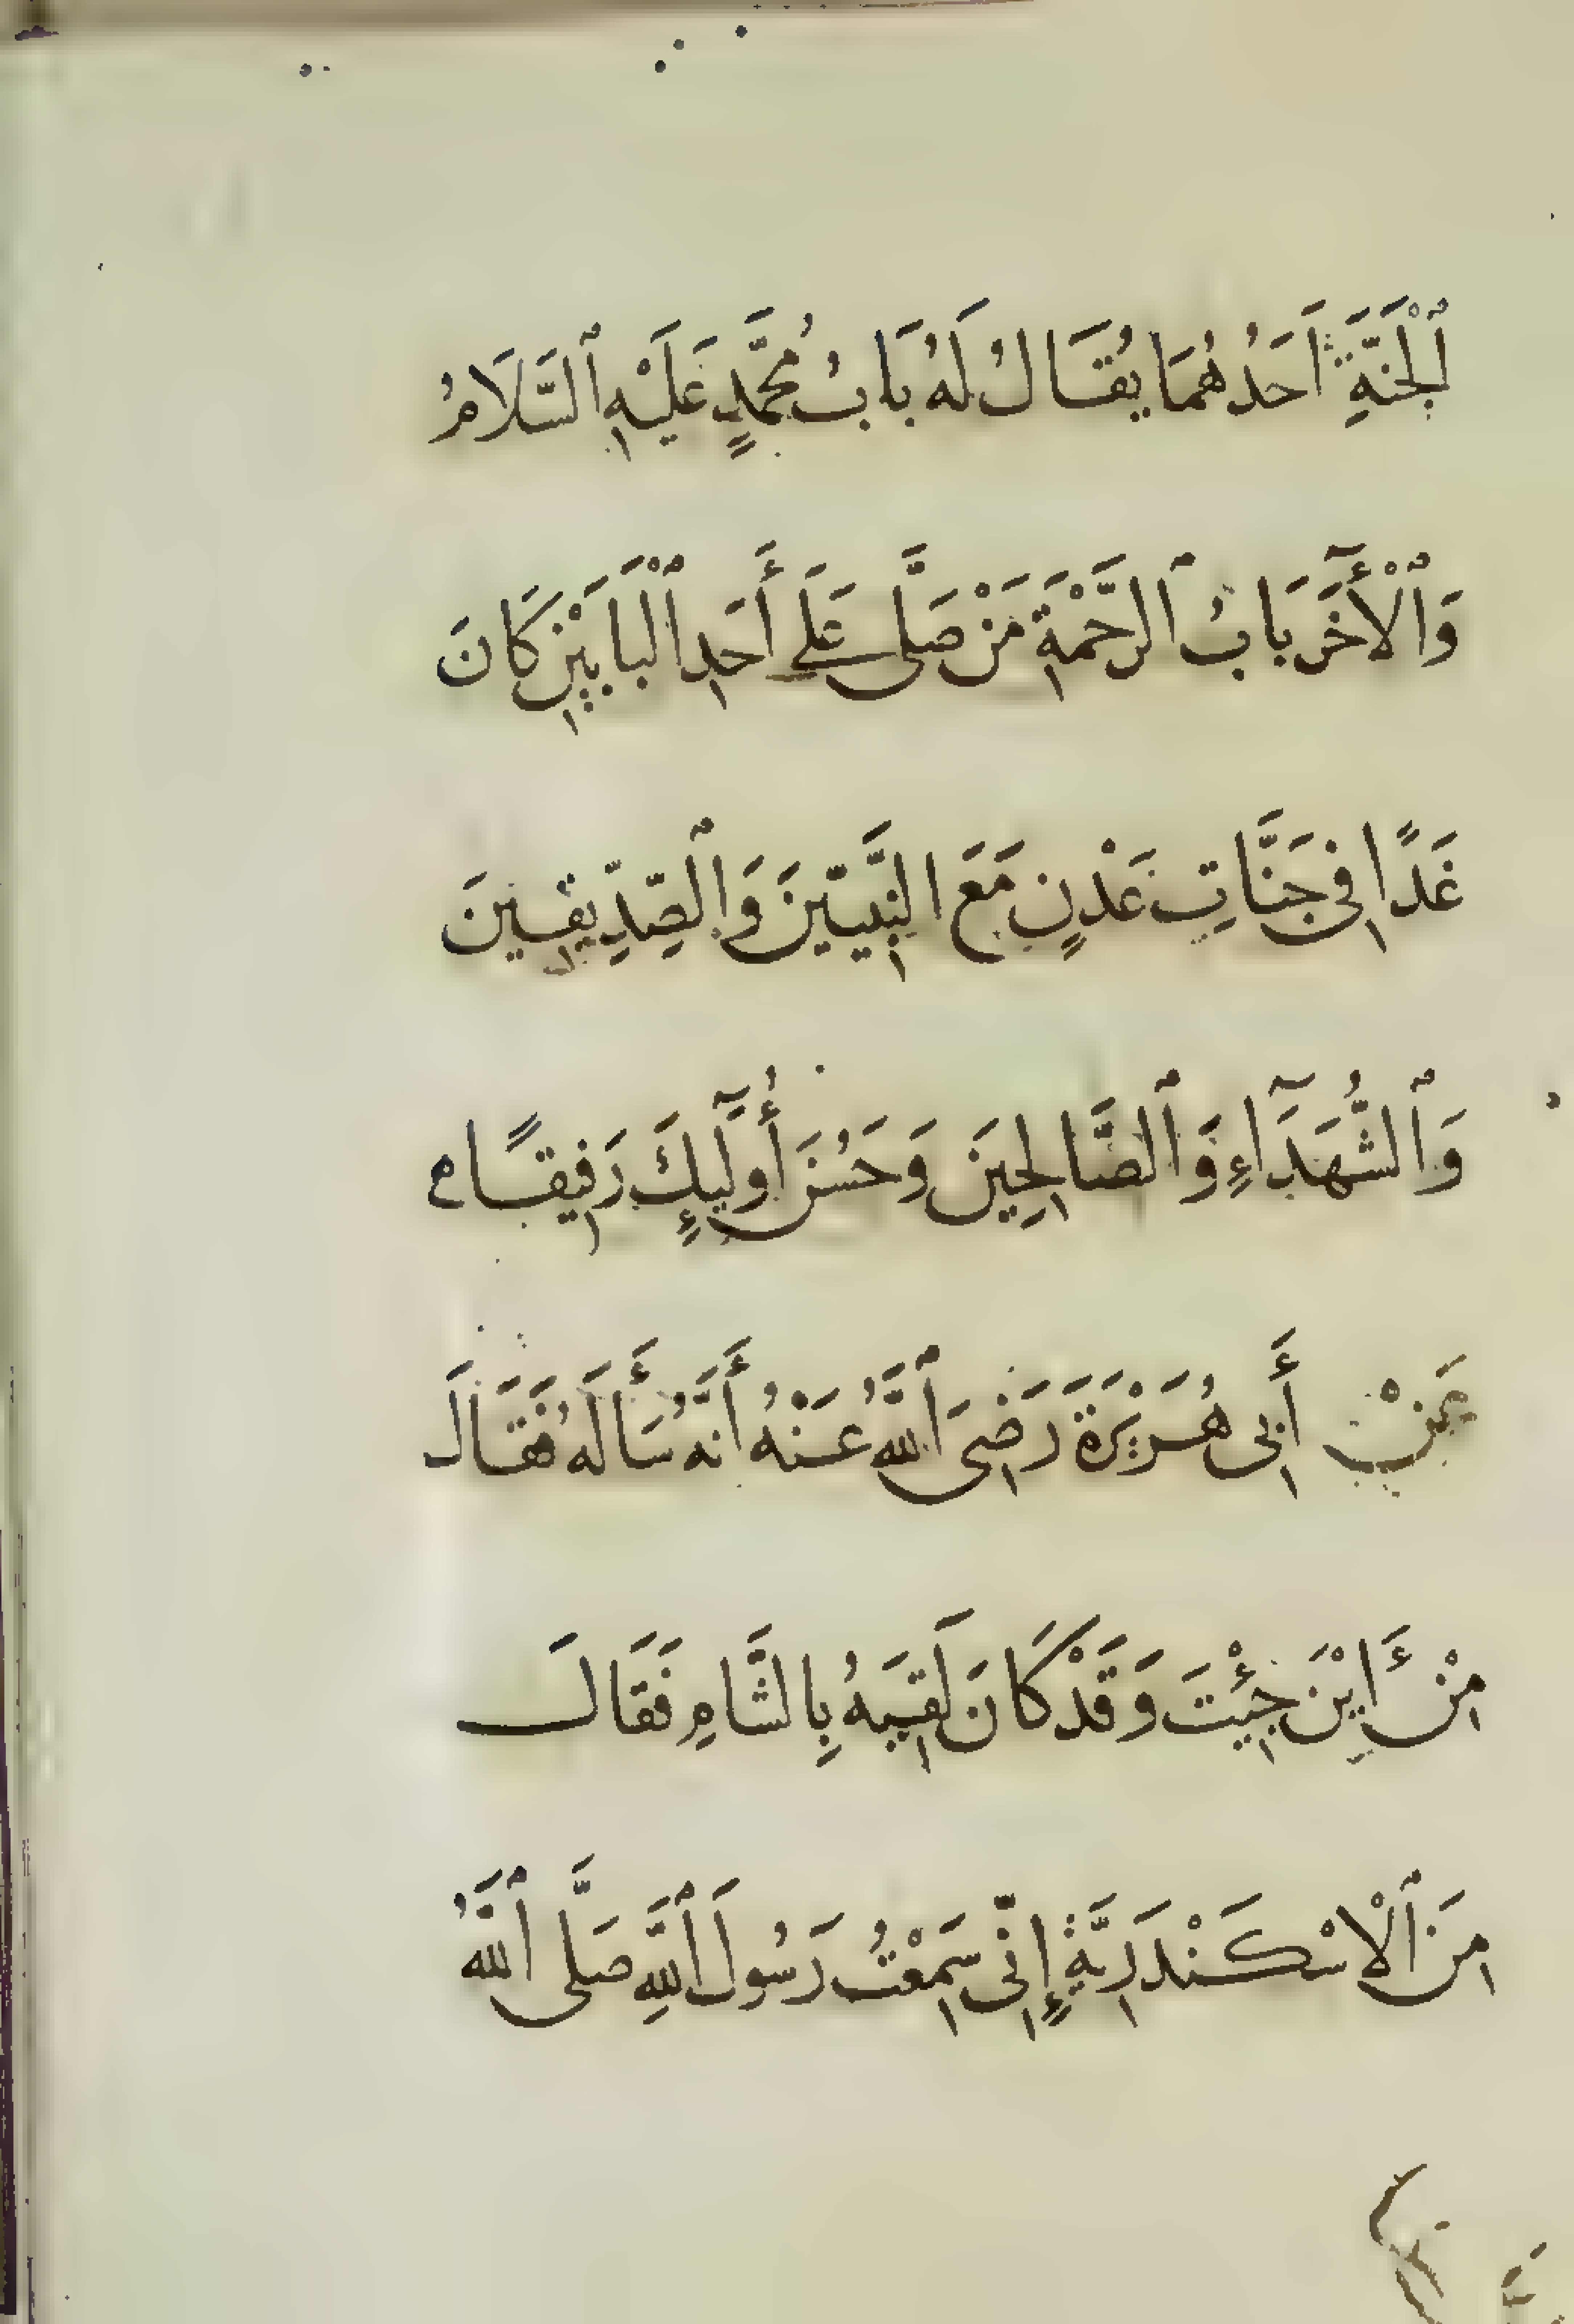 ٱلْجَنَّةِ اَحَدُهُمَا يُقَالُ لَهُ بَابُ مُحَمَّدٍ عَلَيْهِ ٱلسَّلَامُ
وَٱلْأٓخَرُ بَابُ ٱلرَّحْمَةِ مَنْ صَلَّى عَلَى أَحَدِ ٱلْبَابَيْنِ كَانَ
غَدًا فِى جَنَّاتِ عَدْنٍ مَعَ النَّبِيِّينَ وَٱلصِّدِّيقِينَ
وَٱلشُّهَدَآءِ وَٱلصَّالِحِينَ وَحَسُنَ أُولَٓئِكَ رَفِيقًا ع
عَنْ أَبِى هُرَيْرَةَ رَضِىَ ٱللَّهُ عَنْهُ أَنَّهُ سَأَلَهُ فَقَالَ
مِنْ ءَايْنَ جِئْتَ وَقَدْ كَانَ لَقِيَهُ بِالشَّامِ فَقَالَ
مِنَ ٱلْاِسْكَنْدَرِيَّةِ إِنِّى سَمِعْتُ رَسُولَ ٱللَّهِ صَلَّى ٱللَّهُ